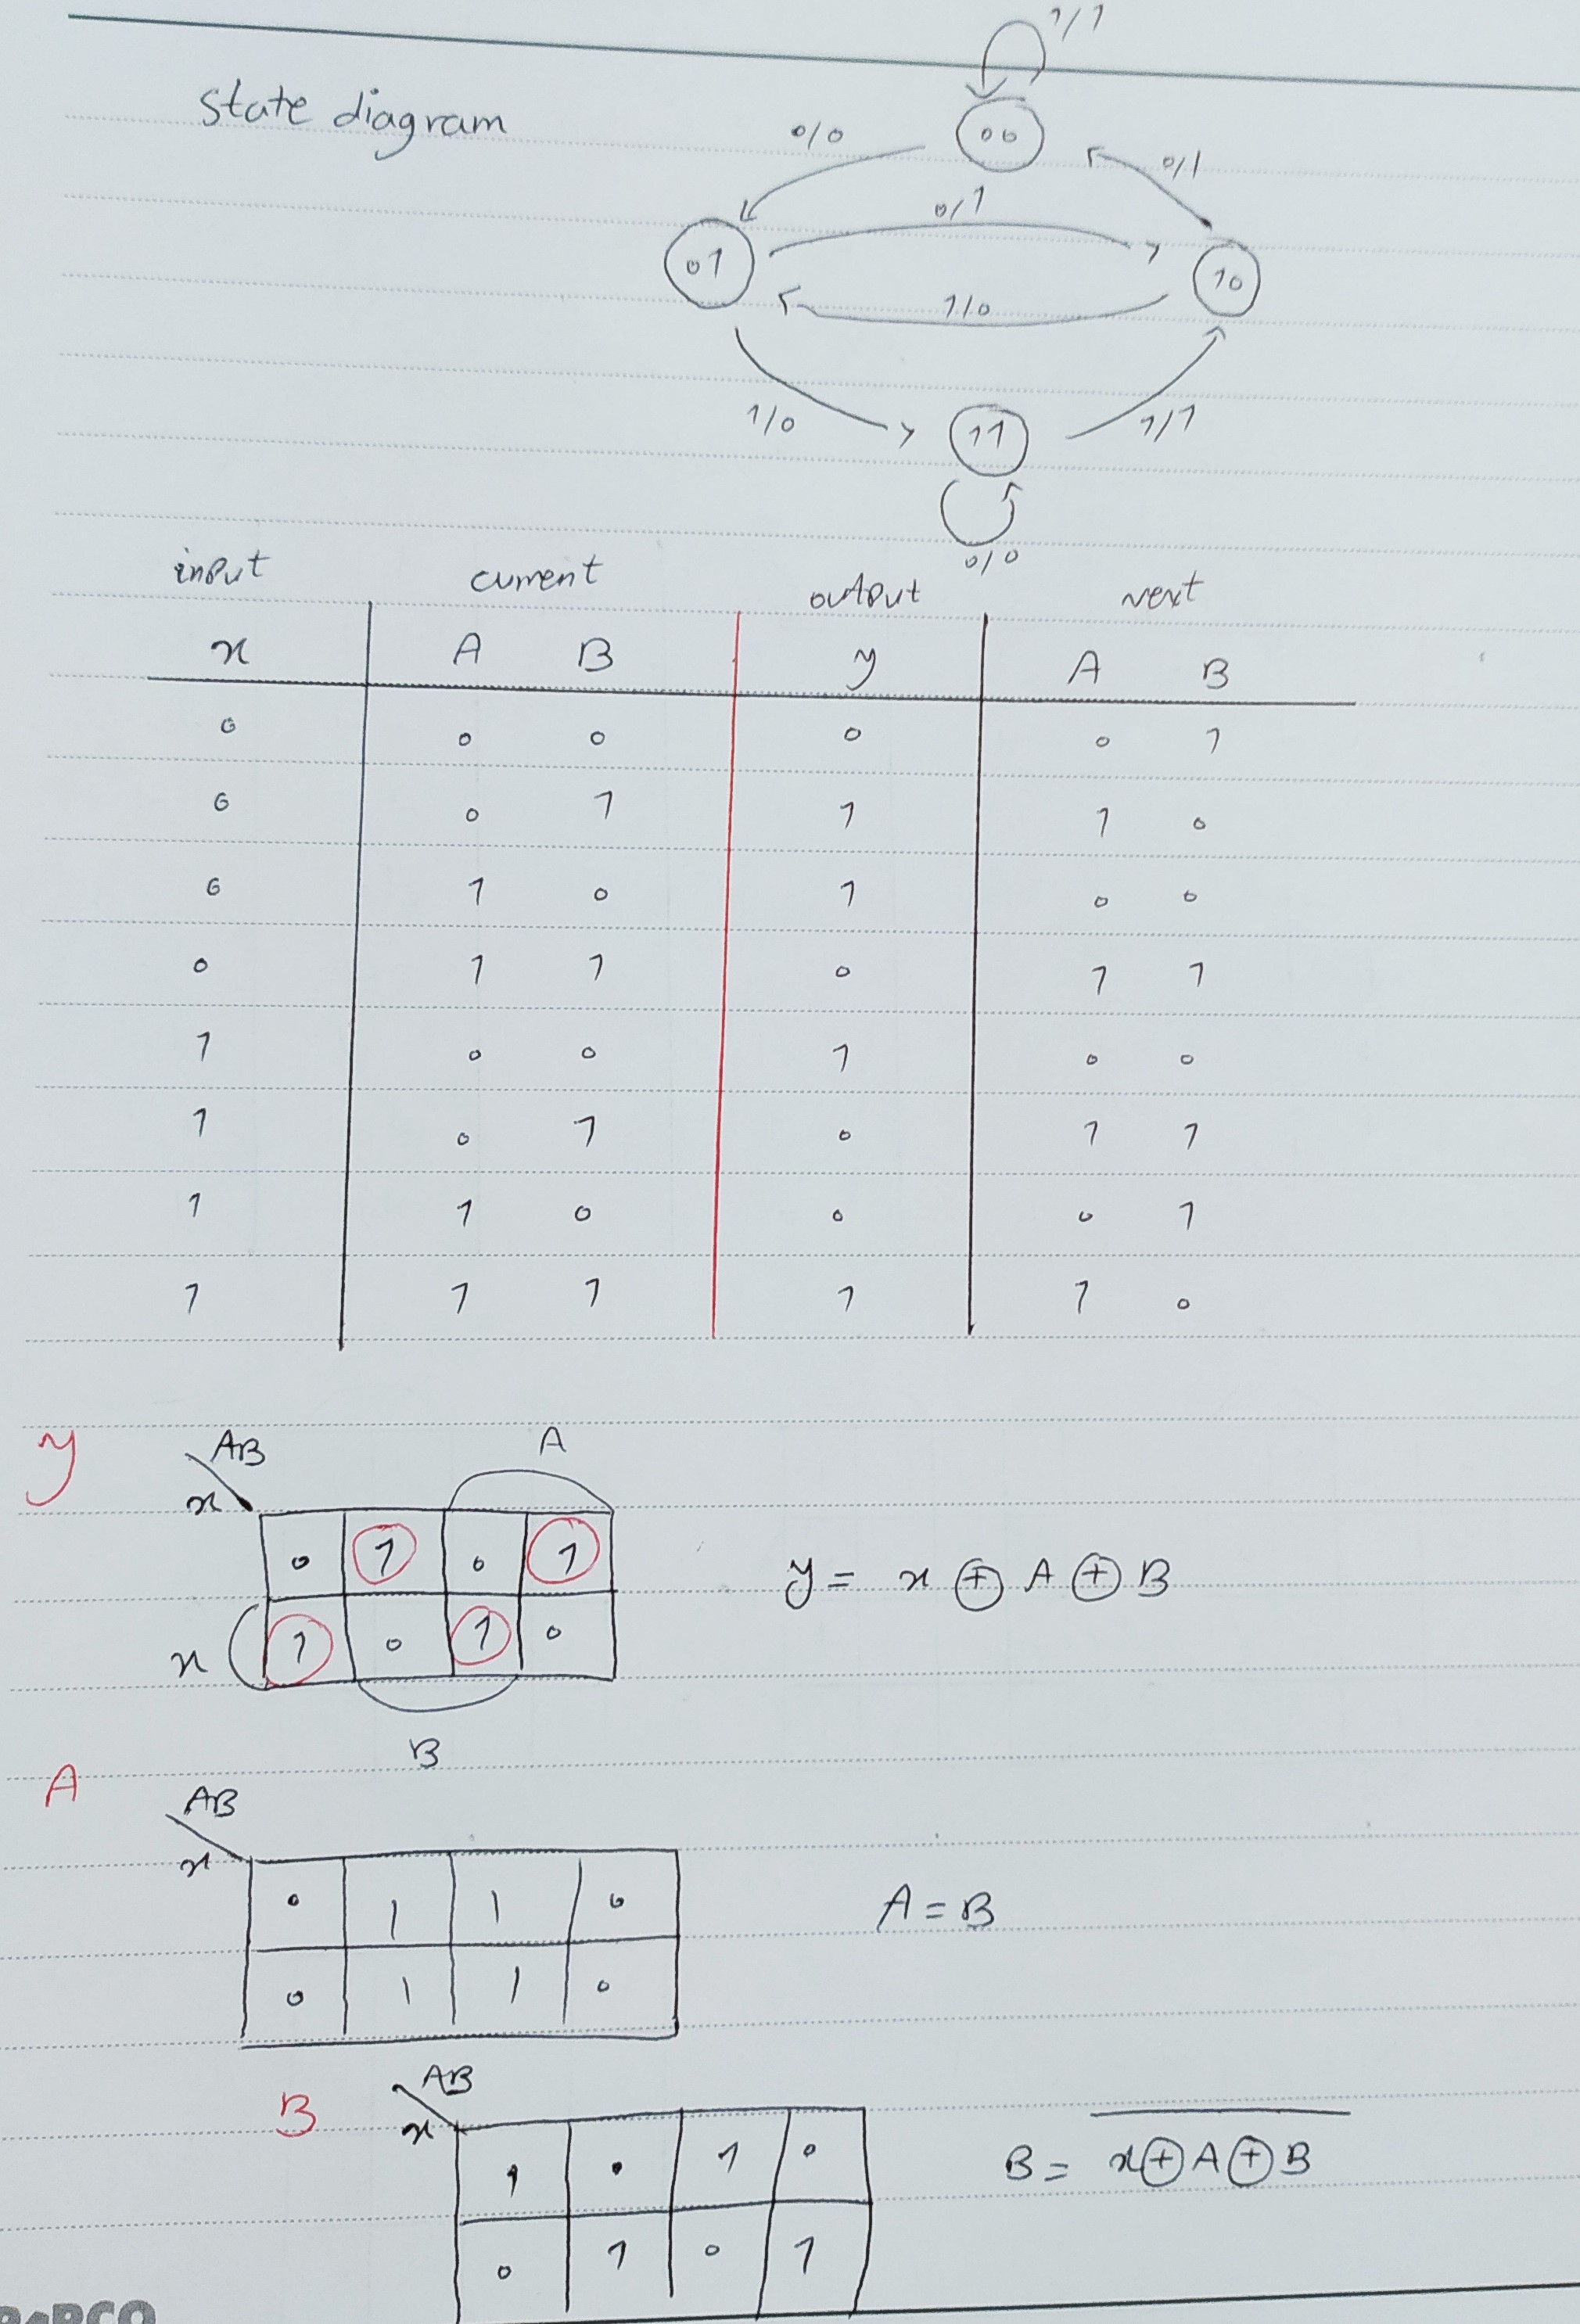 State diagram
1/1
00
0/0
0/1
0/1
01
10
1/0
1/0
11
1/1
0/0
input current output next
x A B y A B
0 0 0 0 0 1
0 0 1 1 1 0
0 1 0 1 0 0
0 1 1 0 1 1
1 0 0 1 0 0
1 0 1 0 1 1
1 1 0 0 0 1
1 1 1 1 1 0
y
AB A
x
0 1 0 1
y = x ⊕ A ⊕ B
x 1 0 1 0
B
A
AB
x
0 1 1 0
A = B
0 1 1 0
B
AB
x
1 0 1 0
B = \overline{x ⊕ A ⊕ B}
0 1 0 1